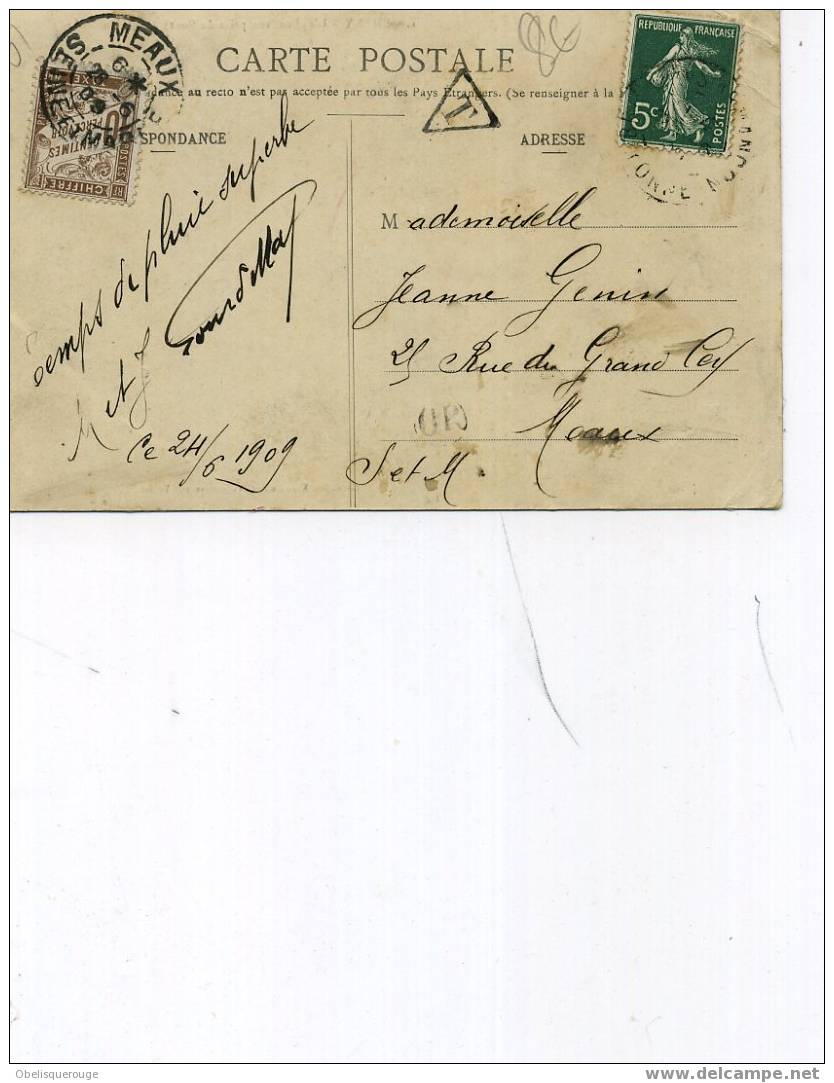 CARTE POSTALE
dance au recto n'est pas acceptée par tous les Pays Étrangers. (Se renseigner à la
SPONDANCE
ADRESSE
MEAUX
SEINE ET M
POSTES
CENTIMES
PERCEVOIR
TAXE
CHIFFRE
RF
T
86
REPUBLIQUE FRANÇAISE
5c
POSTES
YONNE
Temps de pluie superbe
M et J
Ce 24/6 1909
Mademoiselle
Jeanne Genin
25 Rue du Grand Cerf
Meaux
S et M.
Obelisquerouge
www.delcampe.net